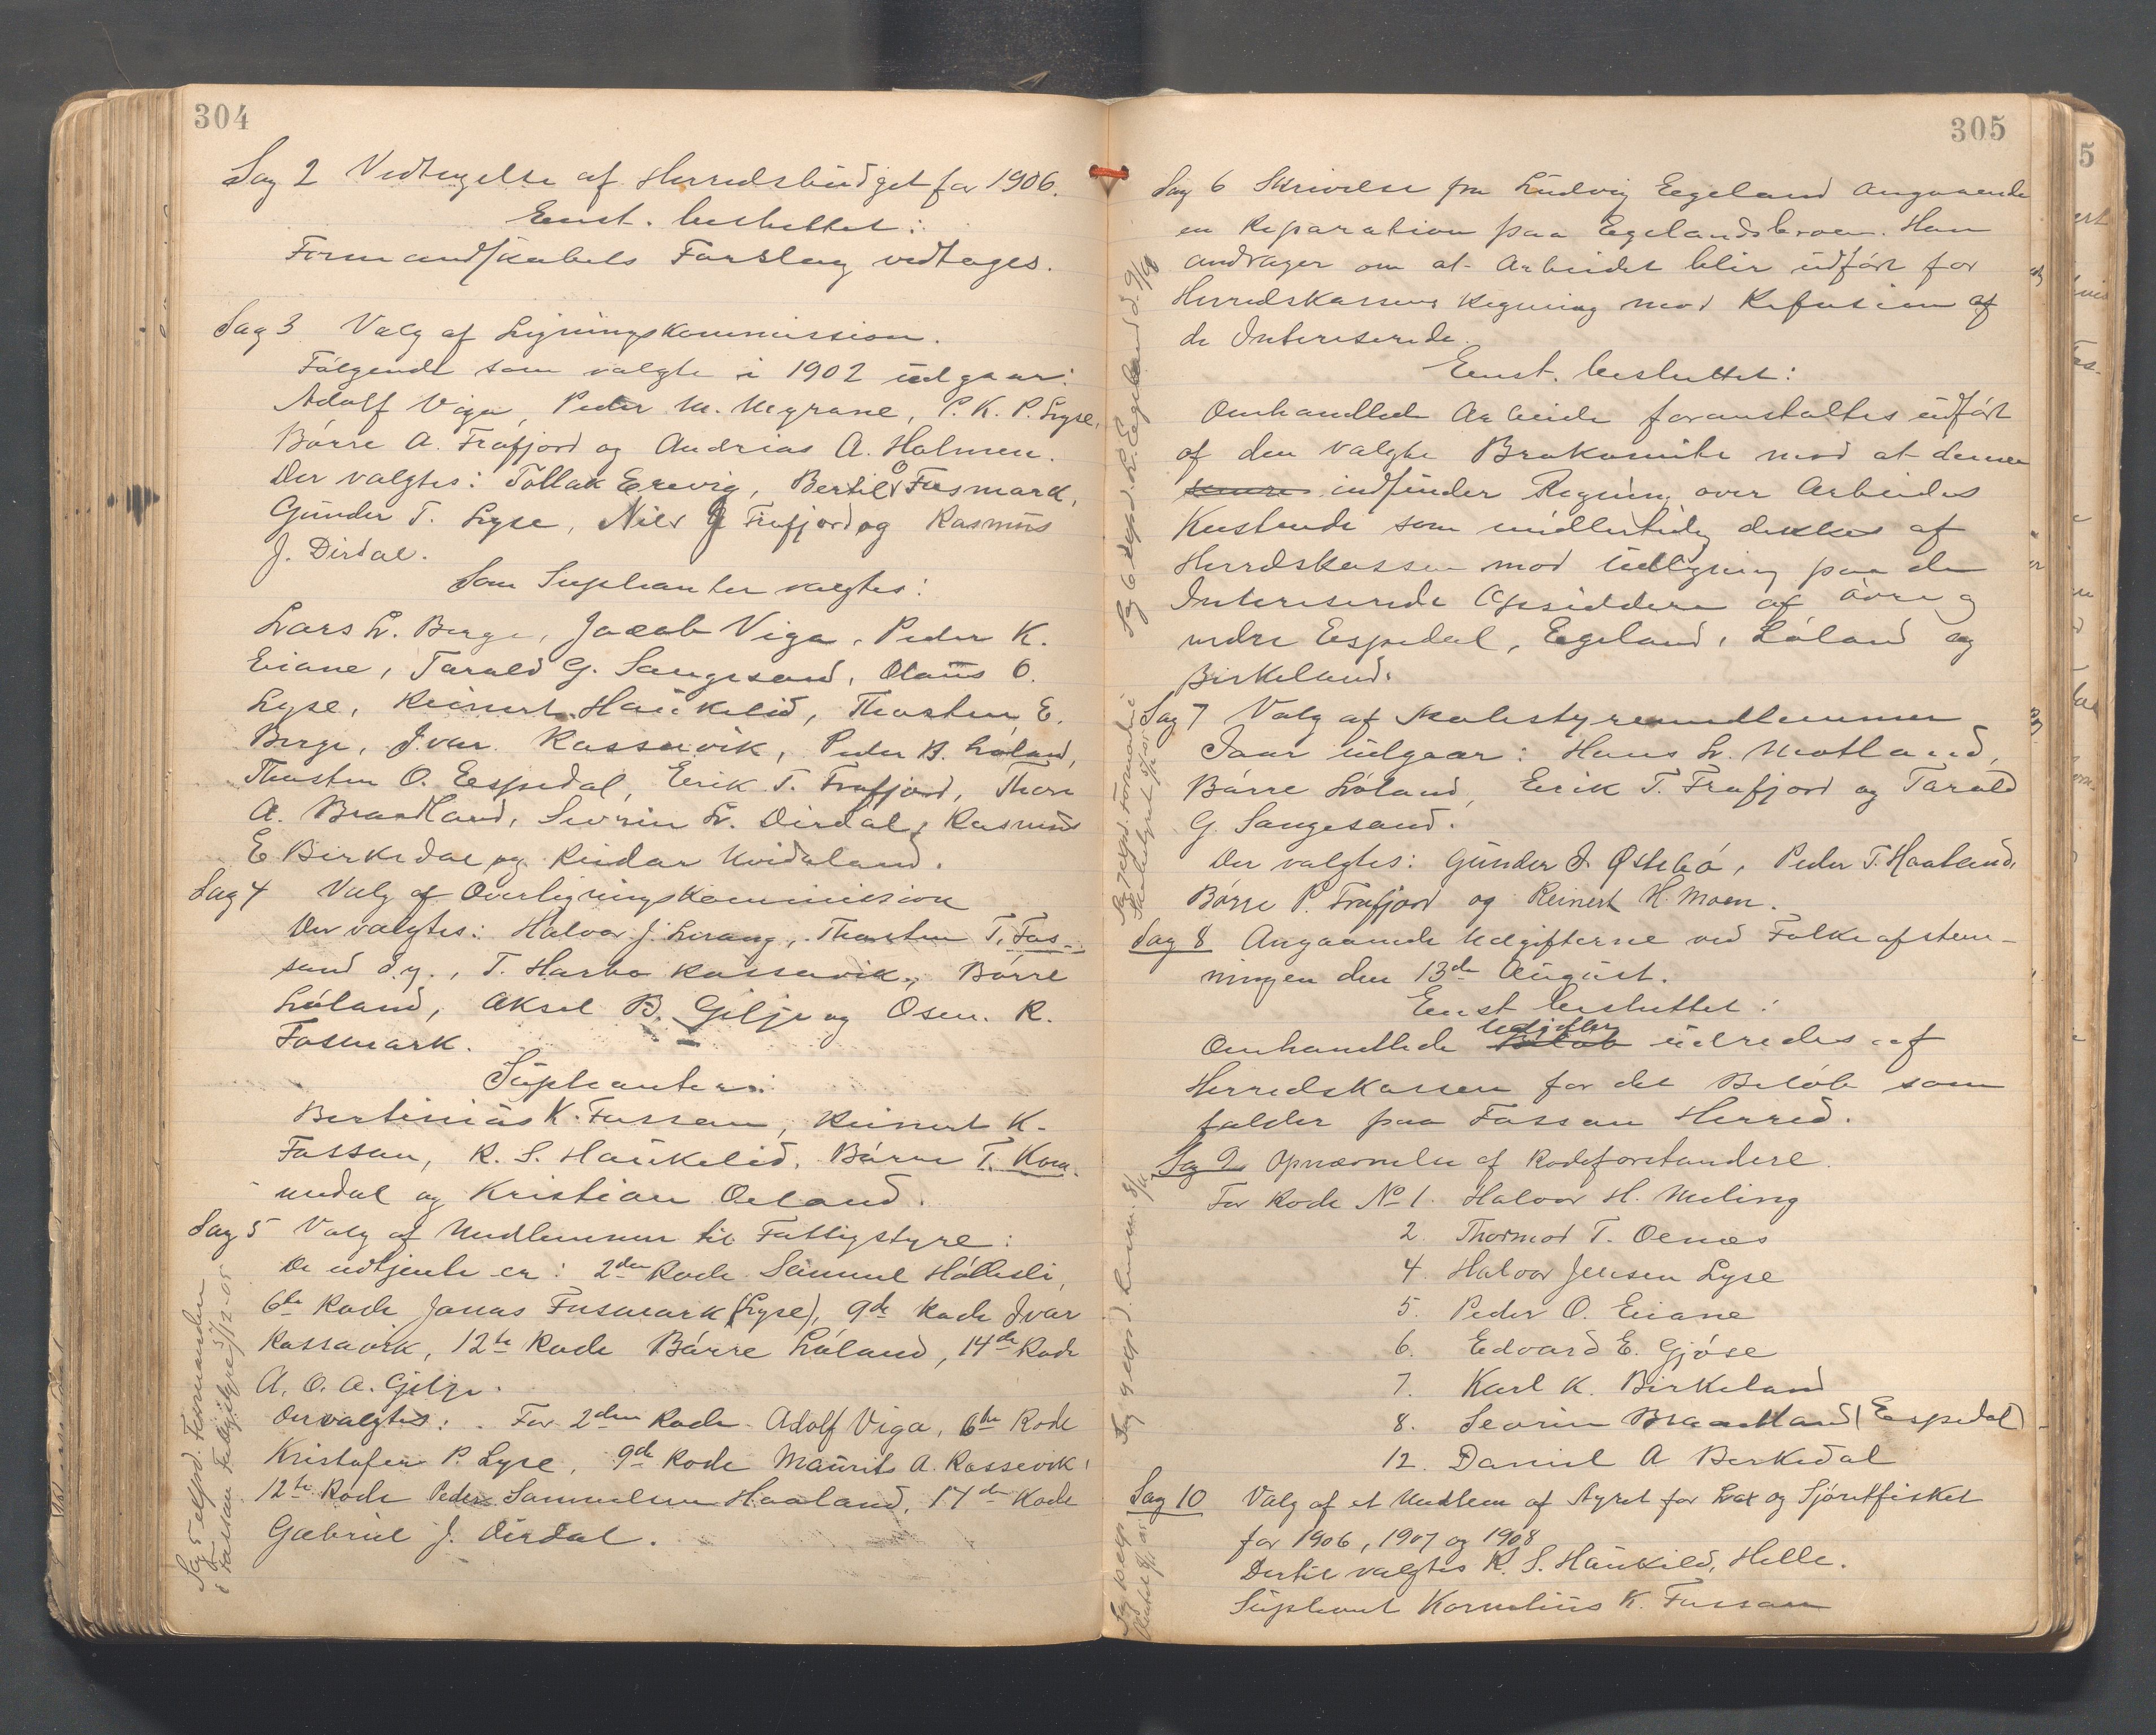 304
Sag 2 Vedtagelse af Herredsbudget for 1906.
Enst. besluttet:
Formandskabets Forslag vedtages.
Sag 3 Valg af Ligningskommission.
Følgende som valgte i 1902 udgaar:
Adolf Viga, Peder M. Megrane, P. K. P. Lyse,
Børre A. Fráfjord og Andrias A. Holmen.
Der valgtes: Tollak Erevig, Bertil O Fosmark,
Gunder T. Lyse, Nils J Frafjord og Rasmus
J. Dirdal.
Som Suplanter valgtes:
Lars L. Berge, Jacob Viga, Peder K.
Eiane, Tarald G. Sangesand, Olaus O.
Lyse, Reinert Haukelid, Thosten E.
Berge, Ivar Rassavik, Peder B. Løland,
Thosten O. Espedal, Eerik T. Frafjord, Thore
A. Braadland, Sevrin L. Dirdal, Rasmus
E Birkedal og Reidar Kvidaland.
Sag 4 Valg af Overligningskommission
Der valgtes: Halvor J. Levang, Thosten T. Fos-
sand d.y., T. Harbo Rassavik, Børre
Løland, Aksel B. Gilje og Osm. R.
Fosmark.
Suplanter:
Bertinius K. Fossan, Reinert K.
Fossan, R. S. Haukelid, Børre T. Kom-
medal og Kristian Oeland.
Sag 5 Valg af Medlemmer til Fattigstyre:
De udtjente er: 2den Rode Samuel Høllesli,
6te Rode Jonas Fosmark (Lyse), 9de Rode Ivar
Rassavik, 12te Rode Børre Løland, 14de Rode
A. O. A. Gilje.
Der valgtes: For 2den Rode Adolf Viga, 6te Rode
Kristofer P. Lyse, 9de Rode Maurits A. Rossevik,
12te Rode Peder Samuelsen Haaland, 14de Rode
Gabriel J. Dirdal.
Sag 5 exspd. Formanden
i Fossan Fattigstyre /12-05
305
Sag 6 Skrivelse fra Ludvig Eegeland angaaende
en Reparation paa Egelandsbroen. Han
andrager om at Arbeidet blir udført for
Herredskassens Regning mod Refusion af
de Intereserede.
Eenst. besluttet:
Omhandlede Arbeide foranstaltes udført
af den valgte Brokomite mod at denne
senere indsender Regning over Arbeides
Kostende som midlertidig dekkes af
Herredskassen mod Udligning paa de
Intereserede Opsiddere af øvre og
nedre Espedal, Eegeland, Løland og
Birkeland.
Sag 6 exspd. L. Eegeland d. 9/
Sag 7 Valg af Skolestyremedlemmer
Iaar udgaar: Hans L. Motland,
Børre Løland, Eerik T. Frafjord og Tarald
G. Sangesand.
Der valgtes: Gunder J. Østebø, Peder T. Haaland,
Børre P. Frafjord og Reinert H. Moen.
Sag 7 exspd. Formand i
Skolestyret
Sag 8 Angaaende Udgifterne ved Folkeafstem-
ningen den 13de August.
Eenst besluttet:
Omhandlede Beløb Udgifter udredes af
Herredskassen for det Beløb som
falder paa Fossan Herred.
Sag 9 Opnævnelse af Rodeforstandere.
For Rode No 1. Halvor H. Meling
2. Thormod T. Oenæs
4. Halvor Jensen Lyse
5. Peder O. Eiane
6. Edvard E. Gjøse
7. Karl K. Birkeland
8. Sevrin Braadland (Espedal)
12. Daniel A Berkedal
Sag 9 exspd.
Sag 10 Valg af et Medlem af styret for Lax og Sjørretfisket
for 1906, 1907 og 1908
Dertil valgtes R. S. Haukelid, Helle.
Supleant Kornelius K. Fossan
Sag 10 exsp
5